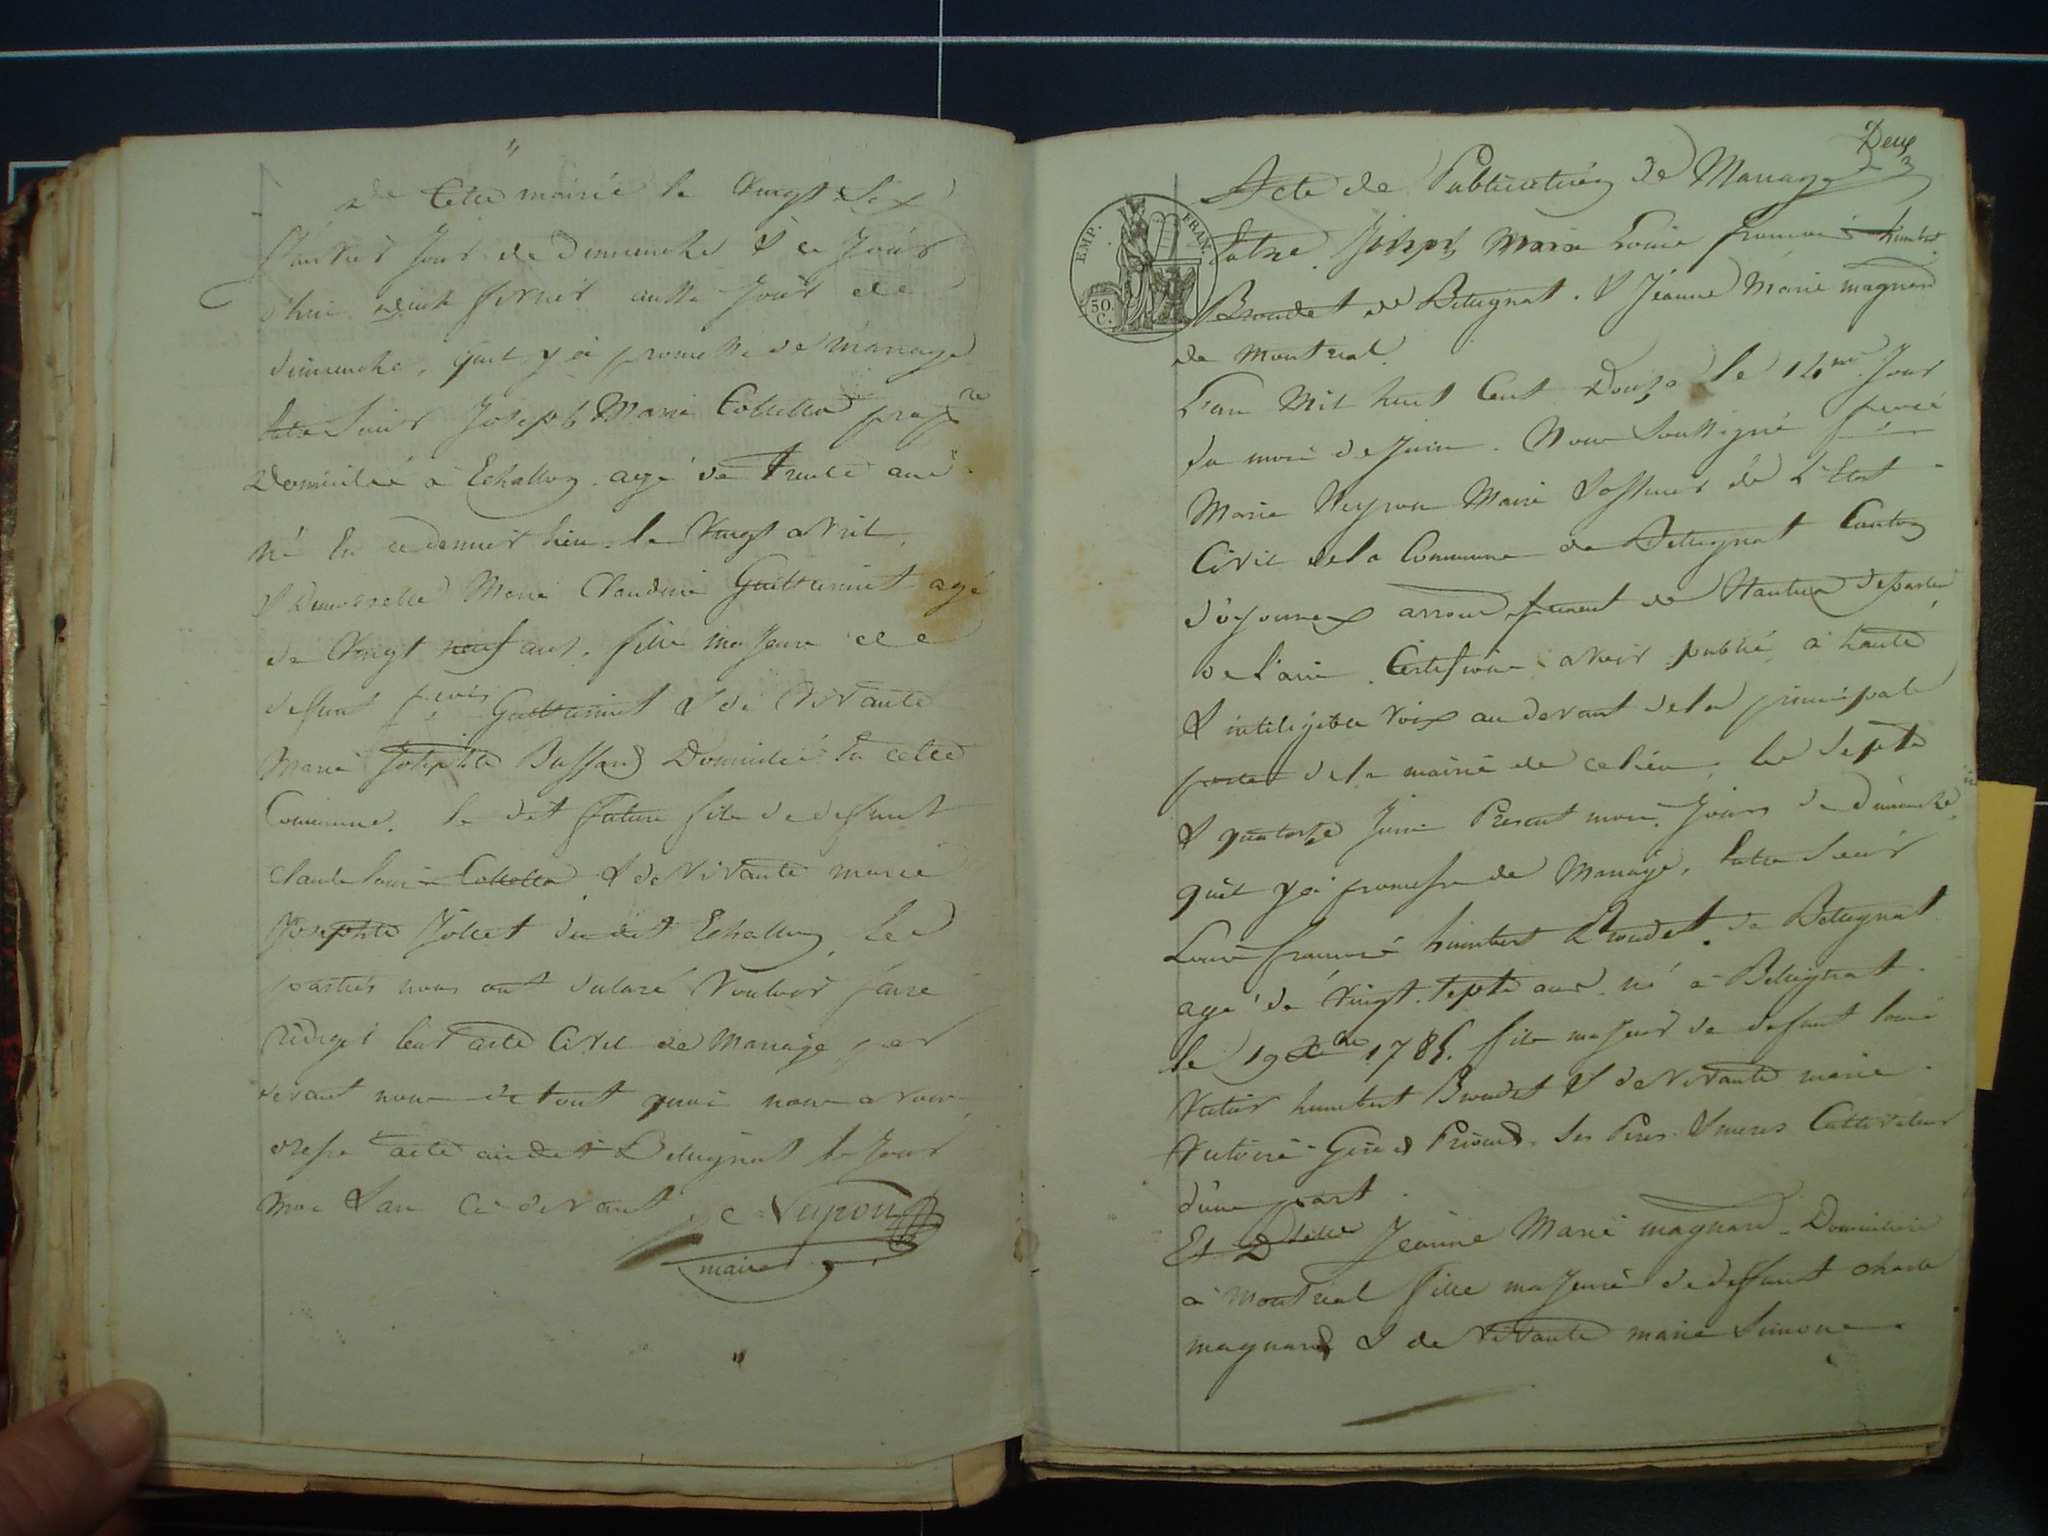 de Cette mairie le Vingt Six
Janvier Jour de dimanche & ce Jour
d'hui deux fevrier aussi Jour de
dimanche, quil y a promesse de mariage
Entre Sieur Joseph Marie Collettaz prop.re
Domicilié à Echallon agé de Trente ans
né En ce dernier lieu le Vingt avril,
& Demoiselle Marie Claudine Guillermet agé
de Vingt neuf ans, fille majeure de
defunt Guillermet & de vivante
Marie Josephte Bussard Domicilié En cette
Commune. le dit future fils de defunt
Claude Louis Collettaz & de vivante marie
Josephte Jollet du dit Echallon, les
parties nous ont declaré Vouloir faire
rediger leur acte Civil de Mariage par
devant nous de tout quoi nous avons
dressé acte au dit Bellignat le Jour
moi & an Ci devant
Veyron
maire
Deux
3
Acte de Publication de Mariage
EMP. FRAN.
50. C.
Entre Joseph Marie Louis francois humbert
Broudet de Bellignat. & Jeanne Marie magnard
de Montreal.
L'an Mil huit Cent Douze le 14me Jour
du mois de Juin. Nous Soussigné
Marie Veyron Maire & officier de L'Etat
Civil de la Commune de Bellignat Canton
d'oyonnax arrondissement de Nantua departem
de l'ain. Certifions avoir publié à haute
& inteligible voix au devant de la principale
porte de la mairie de ce lieu, les Septe
& quatorze Juin Present mois Jours de dimanche
quil y a promesse de Mariage, Entre Sieur
Louis francois humbert Broudet de Bellignat
agé de Vingt Septe ans né à Bellignat
le 19 Xbre 1785. fils majeur de defunt Louis
Victoir humbert Broudet & de vivante marie
Victoire Prioud, Ses Peres & meres Cultivateur
d'une part
Et Dlelle Jeanne Marie magnard Domiciliée
à Montreal fille majeure de deffunt Charle
magnard & de vivante marie Simone